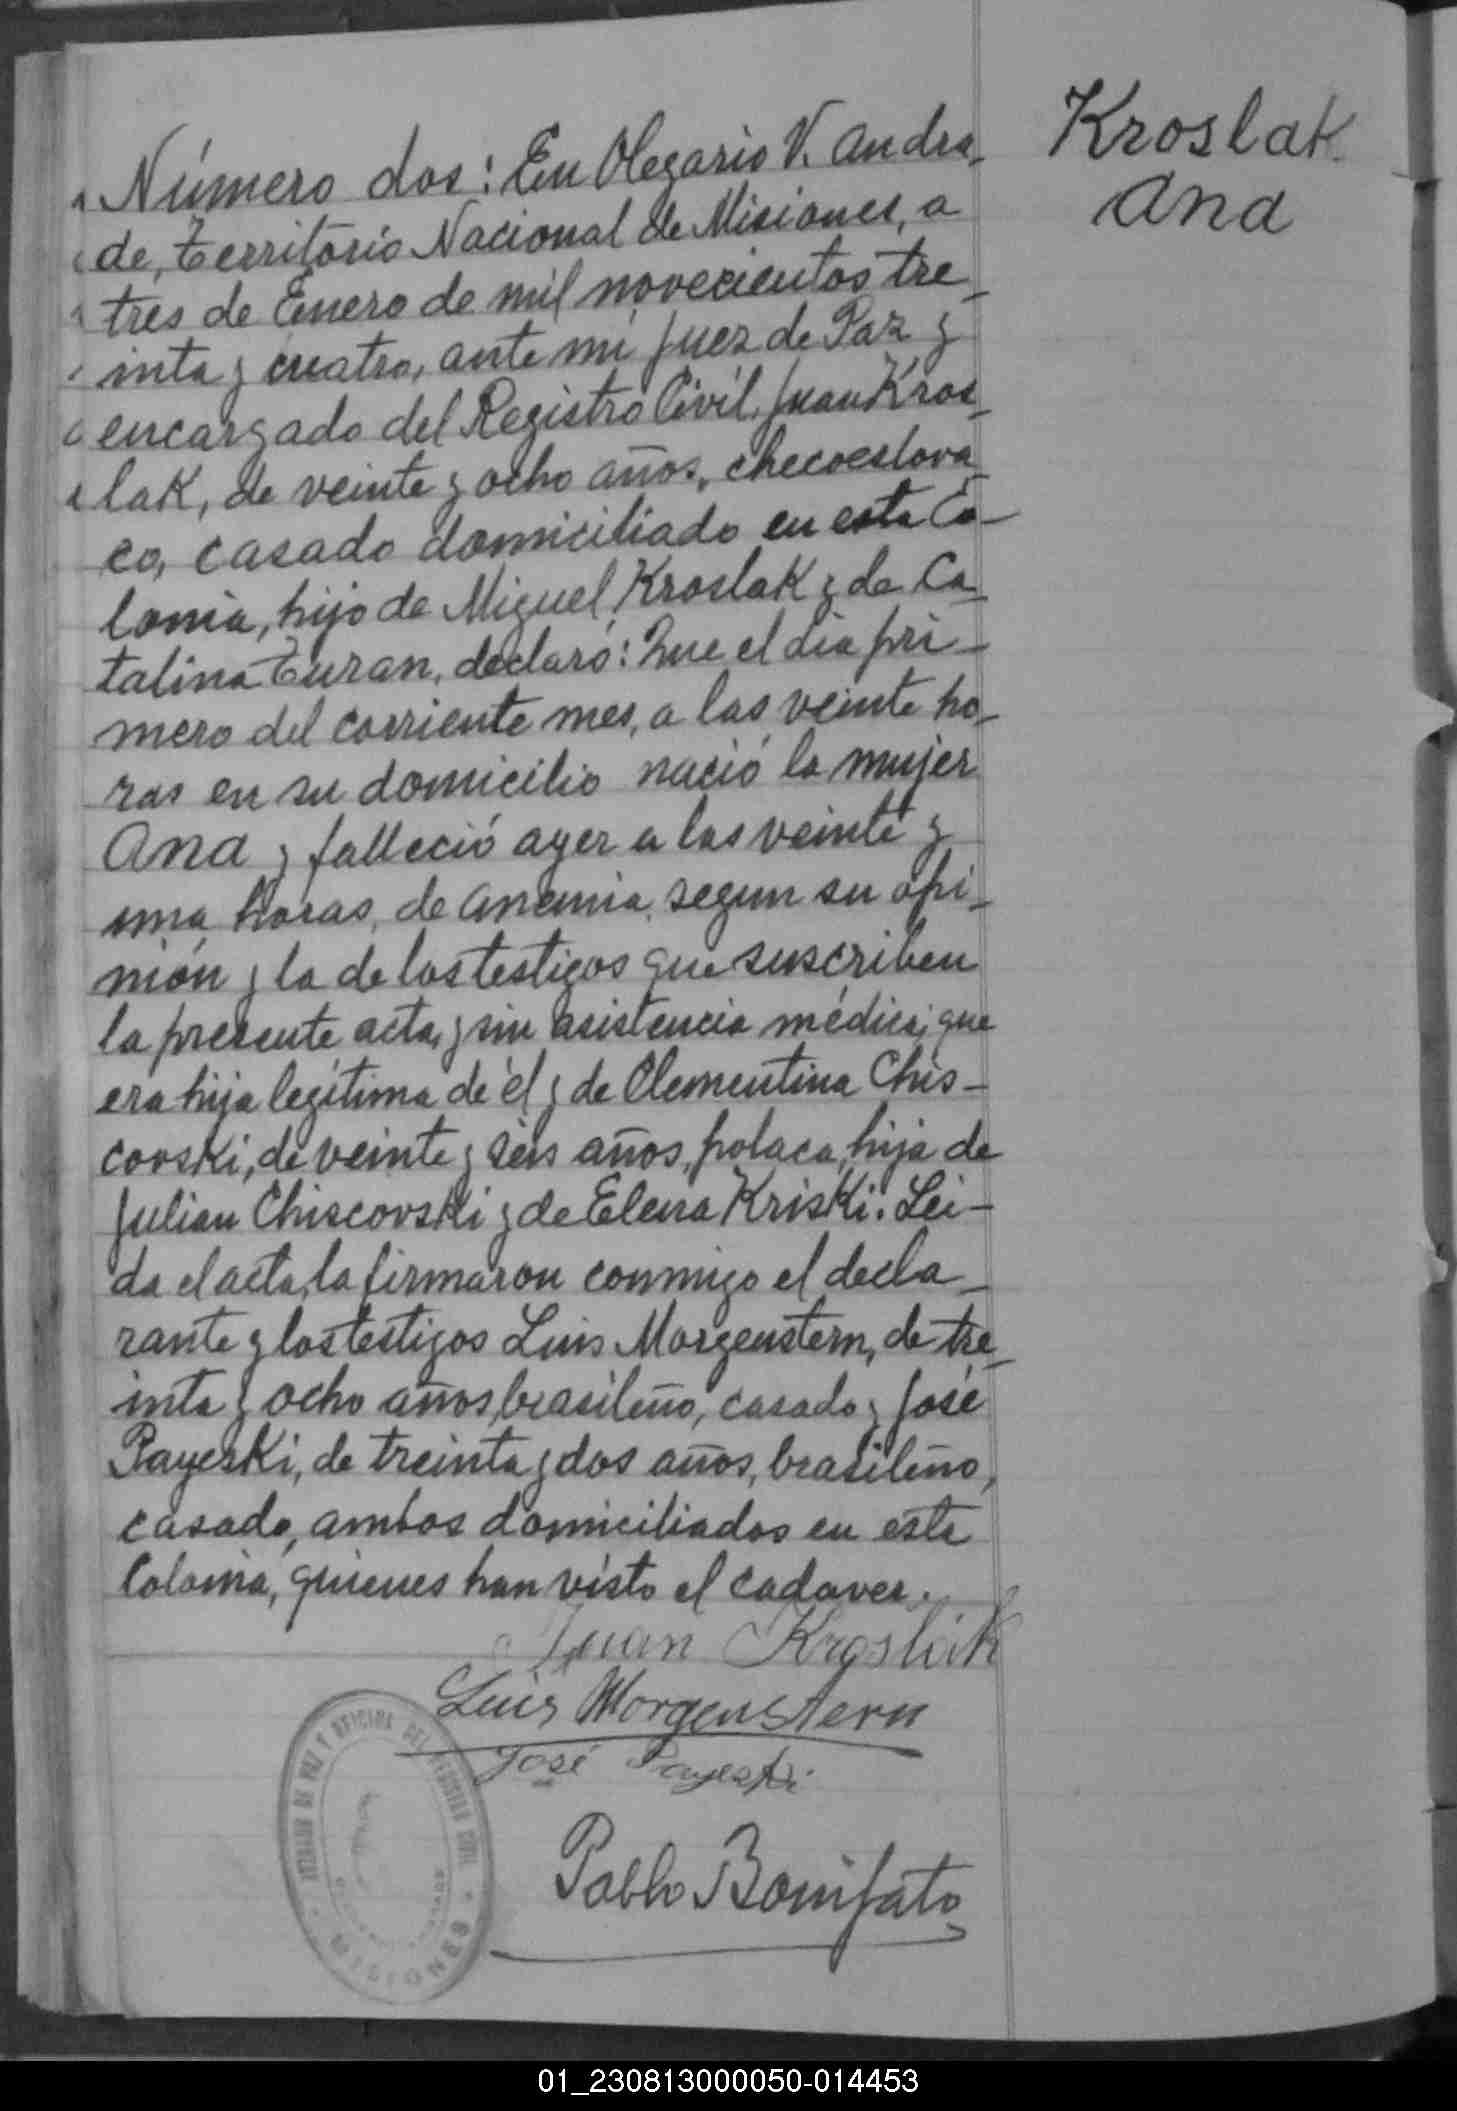 Kroslak
Ana
Número dos: En Olegario V. Andra-
de, Territorio Nacional de Misiones, a
tres de Enero de mil novecientos tre-
inta y cuatro, ante mi Juez de Paz y
encargado del Registro Civil, Juan Kros-
lak, de veinte y ocho años, checoeslova-
co, casado domiciliado en esta Co-
lonia, hijo de Miguel Kroslak y de Ca-
talina Turan, declaró: Que el dia pri-
mero del corriente mes, a las veinte ho-
ras en su domicilio nació la mujer
Ana y falleció ayer a las veinte y
una horas, de anemia, segun su opi-
nión y la de los testigos que suscriben
la presente acta, y sin asistencia médica; que
era hija legítima de él y de Clementina Chis-
covski, de veinte y seis años, polaca, hija de
Julian Chiscovski y de Elena Kriski. Lei-
da el acta, la firmaron conmigo el decla-
rante y los testigos Luis Morgenstern, de tre-
inta y ocho años, brasileño, casado y José
Payeski, de treinta y dos años, brasileño,
casado, ambos domiciliados en esta
Colonia, quienes han visto el cadaver.
Juan Kroslak
Luis Morgenstern
José Payeski
JUZGADO DE PAZ Y OFICINA DEL REGISTRO CIVIL
MISIONES
Pablo Bonifato
01_230813000050-014453